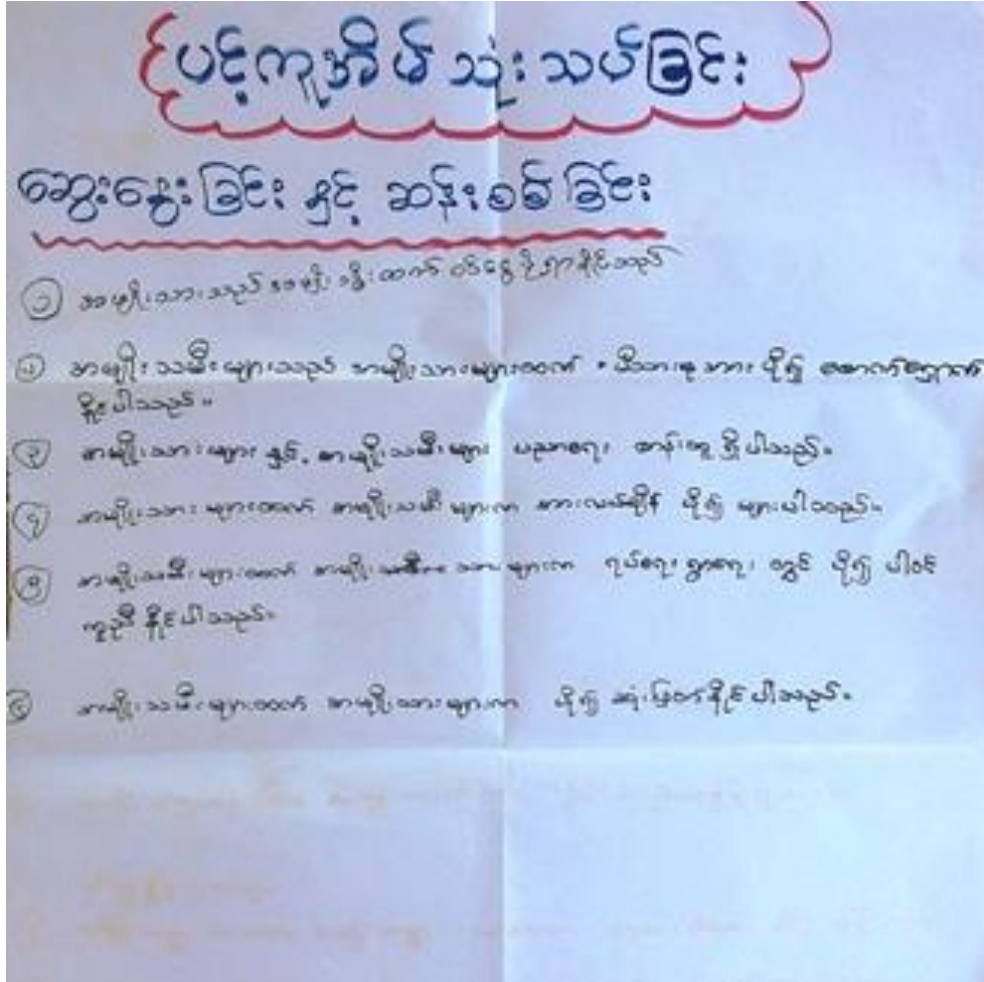 ပင့်ကူအိမ် သုံးသပ်ခြင်း
ဆွေးနွေးခြင်း နှင့် ဆန်းစစ်ခြင်း
၁ အမျိုးသားသည် အမျိုးသမီးထက် ဝင်ငွေပိုရှာနိုင်သည်
၂ အမျိုးသမီးများသည် အမျိုးသားများထက် မိသားစုအား ပို၍ စောင့်ရှောက်
နိုင်ပါသည်။
၃ အမျိုးသားများ နှင့် အမျိုးသမီးများ ပညာရေး တန်းတူ ရှိပါသည်။
၄ အမျိုးသားများထက် အမျိုးသမီးများက အားလပ်ချိန် ပို၍ များပါသည်။
၅ အမျိုးသမီးများထက် အမျိုးသားများက ရပ်ရေး ရွာရေး တွင် ပို၍ ပါဝင်
ကူညီ နိုင်ပါသည်။
၆ အမျိုးသမီးများထက် အမျိုးသားများက ပို၍ ဆုံးဖြတ်နိုင်ပါသည်။